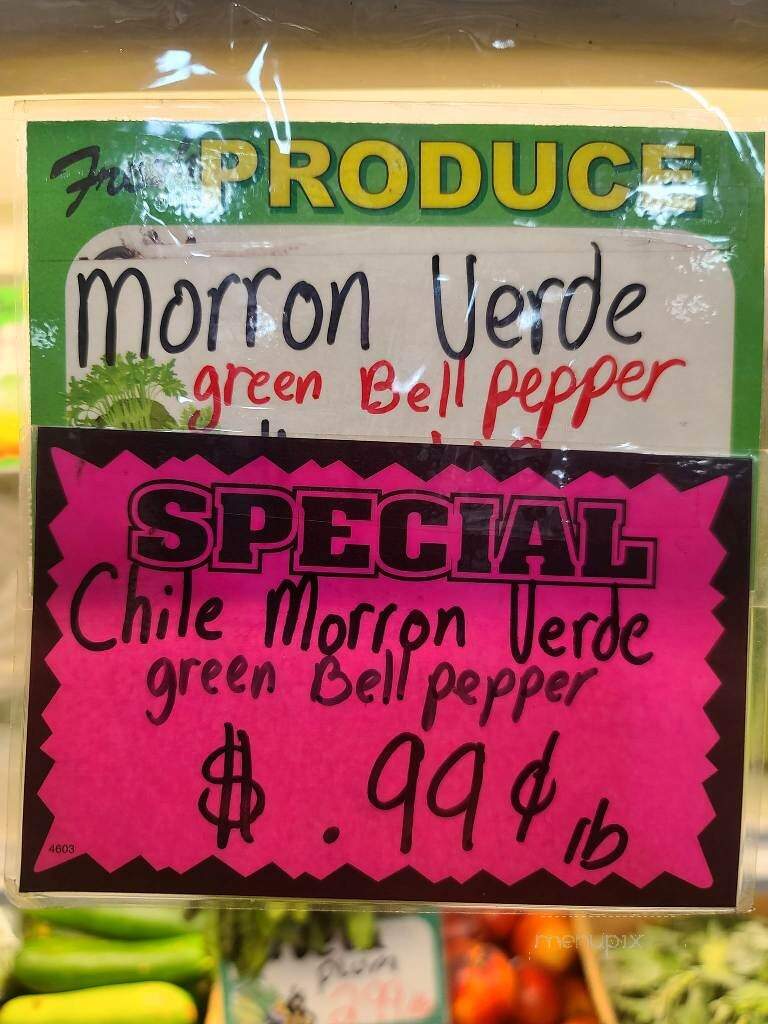 Fresh PRODUCE
Morron Verde
green Bell pepper
SPECIAL
Chile Morron Verde
green Bell pepper
$ .99¢ lb
4603
menupix
plum
$ 2.99